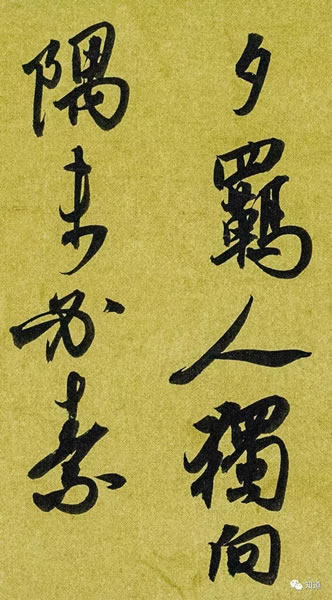 夕羈人獨向
隅未必素